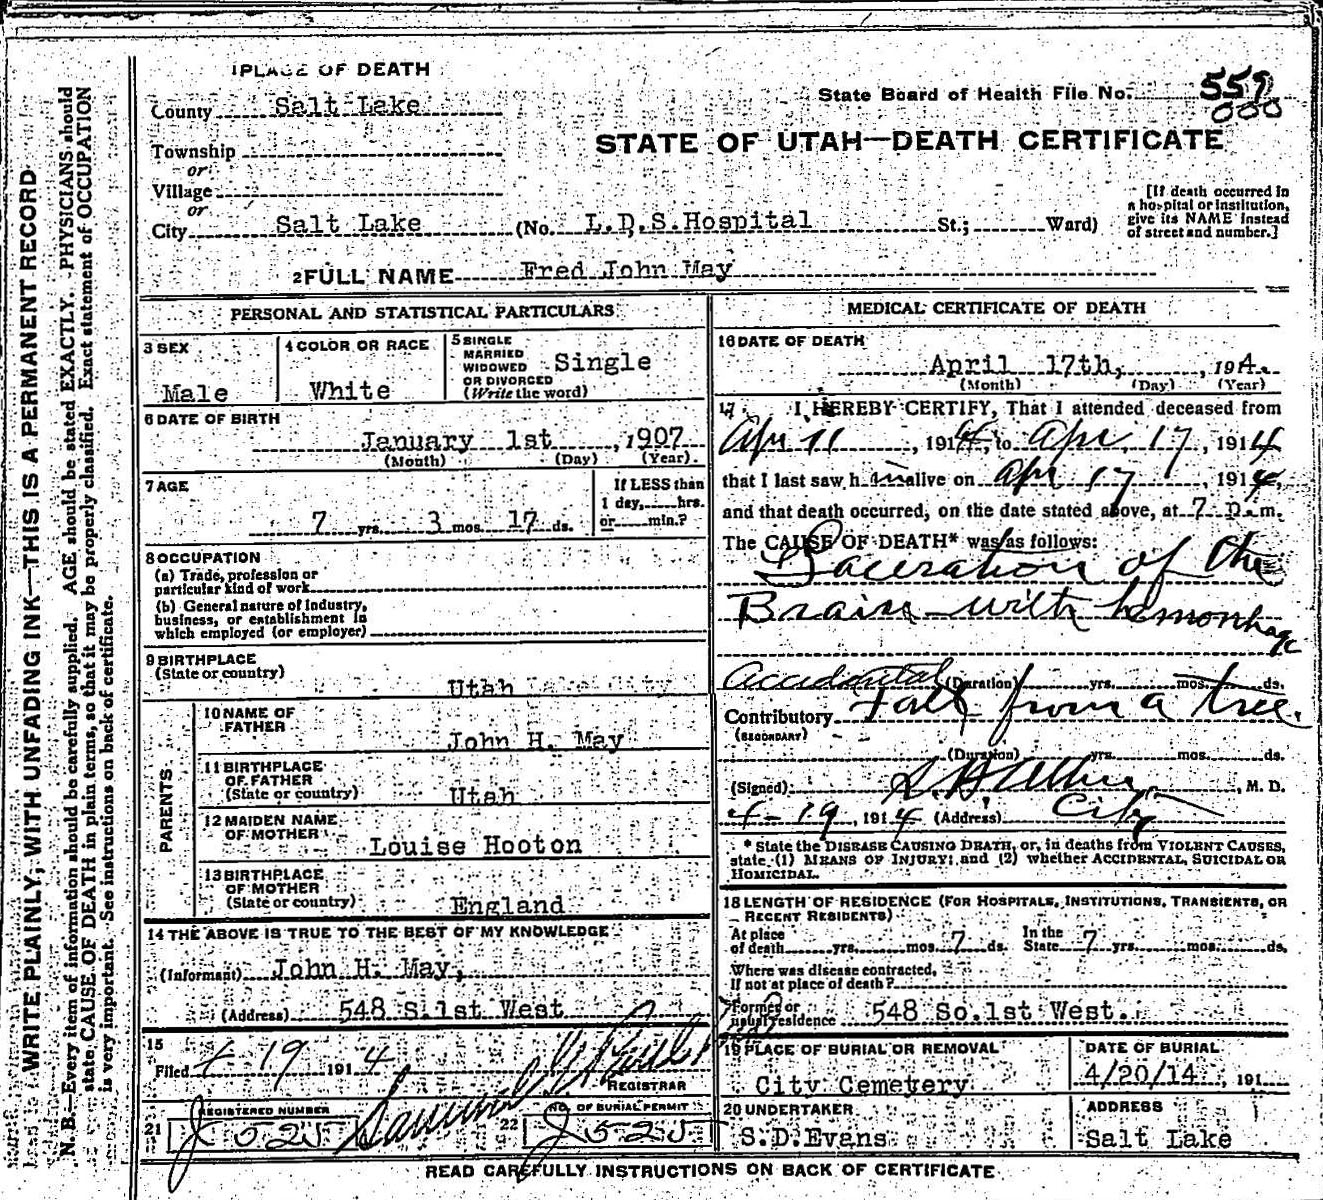 WRITE PLAINLY, WITH UNFADING INK—THIS IS A PERMANENT RECORD
N. B.—Every item of information should be carefully supplied. AGE should be stated EXACTLY. PHYSICIANS should
state CAUSE OF DEATH in plain terms, so that it may be properly classified. Exact statement of OCCUPATION
is very important. See instructions on back of certificate.
1 PLACE OF DEATH
County Salt Lake
State Board of Health File No. 559
000
STATE OF UTAH—DEATH CERTIFICATE
Township
or
Village
or
City Salt Lake (No. L.D.S.Hospital St.; Ward)
[If death occurred in
a hospital or institution,
give its NAME instead
of street and number.]
2 FULL NAME Fred John May
PERSONAL AND STATISTICAL PARTICULARS
3 SEX
Male
4 COLOR OR RACE
White
5 SINGLE
MARRIED
WIDOWED
OR DIVORCED
(Write the word)
Single
6 DATE OF BIRTH
January 1st, 1907
(Month) (Day) (Year)
7 AGE
7 yrs. 3 mos. 17 ds.
If LESS than
1 day, hrs.
or min.?
8 OCCUPATION
(a) Trade, profession or
particular kind of work
(b) General nature of Industry,
business, or establishment in
which employed (or employer)
9 BIRTHPLACE
(State or country)
Utah
PARENTS
10 NAME OF
FATHER
John H. May
11 BIRTHPLACE
OF FATHER
(State or country)
Utah
12 MAIDEN NAME
OF MOTHER
Louise Hooton
13 BIRTHPLACE
OF MOTHER
(State or country)
England
14 THE ABOVE IS TRUE TO THE BEST OF MY KNOWLEDGE
(Informant) John H. May,
(Address) 548 S.1st West
15
Filed 4-19 1914
REGISTRAR
REGISTERED NUMBER
21 J 525
22 NO. OF BURIAL PERMIT
J 525
MEDICAL CERTIFICATE OF DEATH
16 DATE OF DEATH
April 17th, , 1914.
(Month) (Day) (Year)
17 I HEREBY CERTIFY, That I attended deceased from
Apr 11, 1914, to Apr. 17, 1914
that I last saw him alive on Apr 17, 1914,
and that death occurred, on the date stated above, at 7 P.m.
The CAUSE OF DEATH* was as follows:
Laceration of the
Brain with hemorrhage
Accidental (Duration) yrs. mos. ds.
Contributory Fall from a tree.
(SECONDARY)
(Duration) yrs. mos. ds.
(Signed) , M. D.
4-19, 1914 (Address) City
* State the DISEASE CAUSING DEATH, or, in deaths from VIOLENT CAUSES,
state (1) MEANS OF INJURY; and (2) whether ACCIDENTAL, SUICIDAL OR
HOMICIDAL.
18 LENGTH OF RESIDENCE (FOR HOSPITALS, INSTITUTIONS, TRANSIENTS, OR
RECENT RESIDENTS)
At place
of death yrs. mos. 7 ds. In the
State 7 yrs. mos. ds.
Where was disease contracted,
If not at place of death?
Former or
usual residence 548 So.1st West.
19 PLACE OF BURIAL OR REMOVAL
City Cemetery
DATE OF BURIAL
4/20/14, 191
20 UNDERTAKER
S.D.Evans
ADDRESS
Salt Lake
READ CAREFULLY INSTRUCTIONS ON BACK OF CERTIFICATE